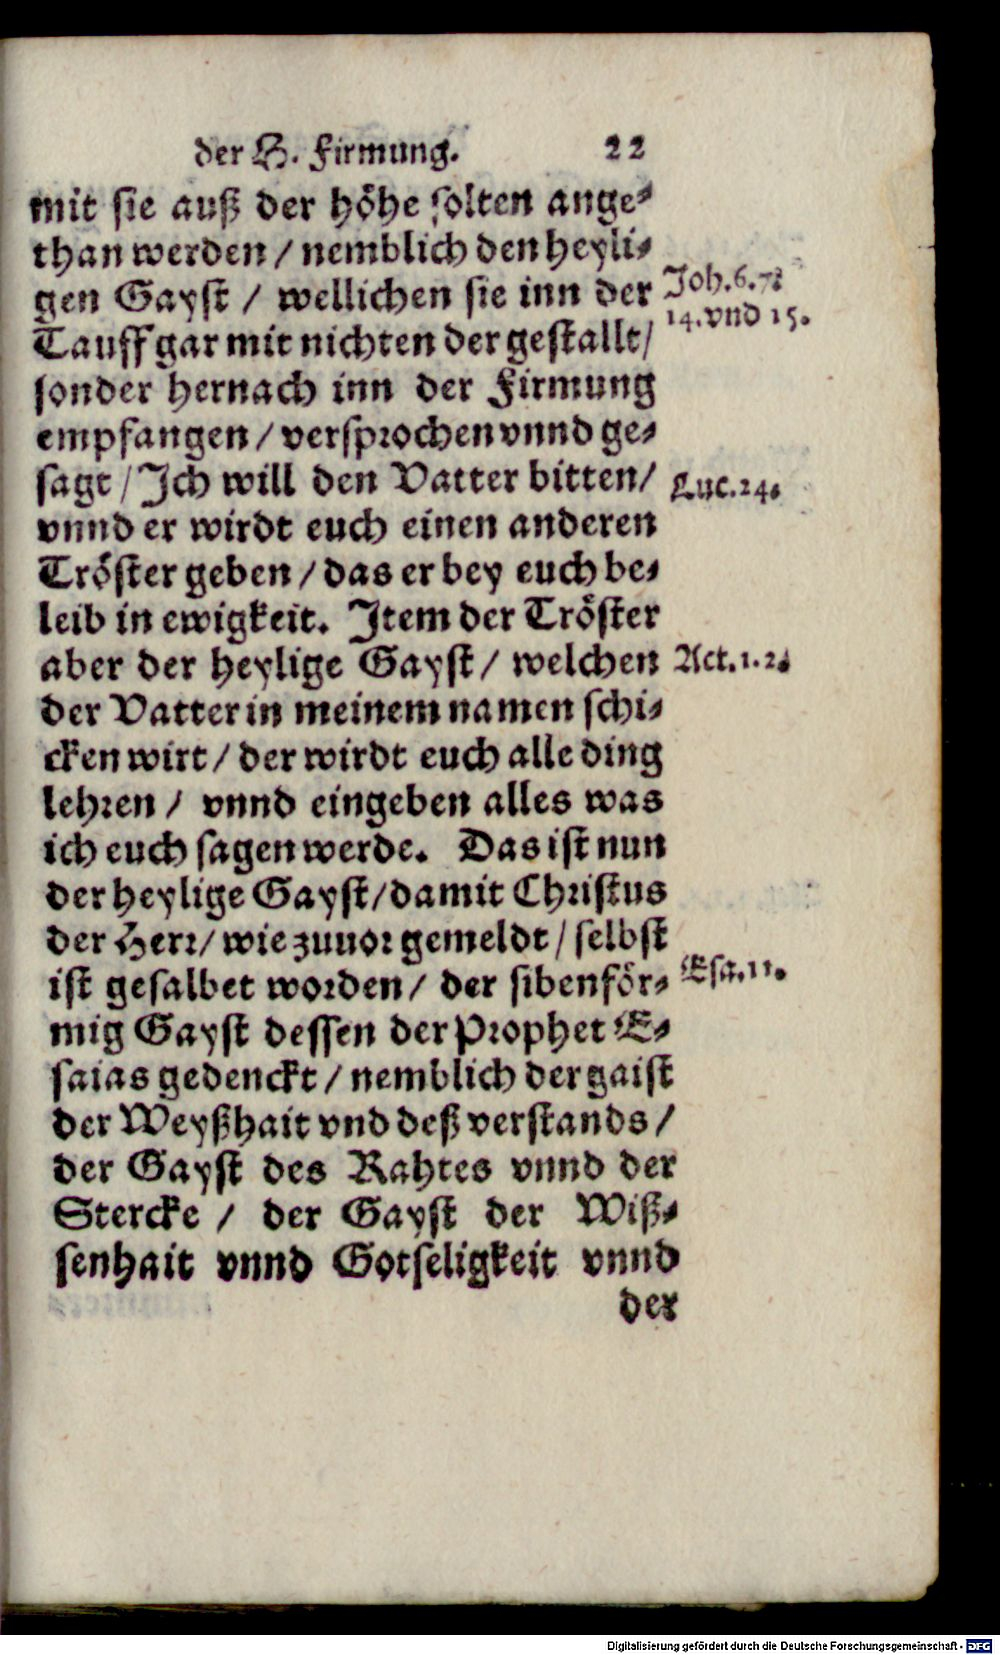 der H. Firmung. 22
mit sie auß der höhe solten ange-
than werden / nemblich den heyli-
gen Gayst / wellichen sie inn der
Joh. 6. 7.
14. vnd 15.
Tauff gar mit nichten der gestallt /
sonder hernach inn der Firmung
empfangen / versprochen vnnd ge-
sagt / Ich will den Vatter bitten /
Luc. 24.
vnnd er wirdt euch einen anderen
Tröster geben / das er bey euch be-
leib in ewigkeit. Item der Tröster
aber der heylige Gayst / welchen
Act. 1. 2.
der Vatter in meinem namen schi-
cken wirt / der wirdt euch alle ding
lehren / vnnd eingeben alles was
ich euch sagen werde. Das ist nun
der heylige Gayst / damit Christus
der Herr / wie zuuor gemeldt / selbst
ist gesalbet worden / der sibenför-
Esa. 11.
mig Gayst dessen der Prophet E-
saias gedenckt / nemblich der gaist
der Weyßhait vnd deß verstands /
der Gayst des Rahtes vnnd der
Stercke / der Gayst der Wiß-
senhait vnnd Gotseligkeit vnnd
der
Digitalisierung gefördert durch die Deutsche Forschungsgemeinschaft - DFG